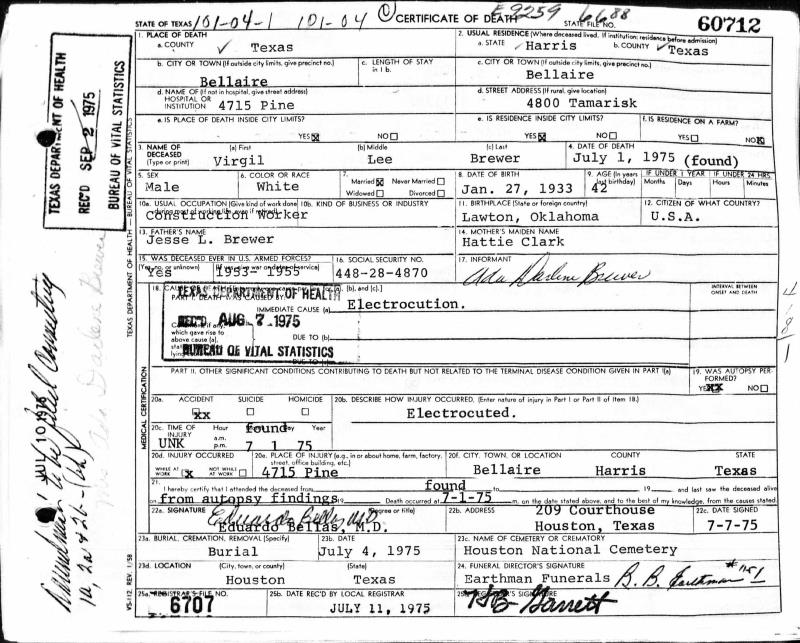 STATE OF TEXAS 101-04-1 101-04 CERTIFICATE OF DEATH E9259 STATE FILE NO. 6688 60712
1. PLACE OF DEATH
a. COUNTY Texas
2. USUAL RESIDENCE (Where deceased lived. If institution: residence before admission)
a. STATE Harris b. COUNTY Texas
b. CITY OR TOWN (If outside city limits, give precinct no.)
Bellaire
c. LENGTH OF STAY in 1 b.
c. CITY OR TOWN (If outside city limits, give precinct no.)
Bellaire
d. NAME OF (If not in hospital, give street address)
HOSPITAL OR
INSTITUTION 4715 Pine
d. STREET ADDRESS (If rural, give location)
4800 Tamarisk
e. IS PLACE OF DEATH INSIDE CITY LIMITS?
YES X NO
e. IS RESIDENCE INSIDE CITY LIMITS?
YES X NO
f. IS RESIDENCE ON A FARM?
YES NO X
3. NAME OF DECEASED (Type or print)
(a) First (b) Middle (c) Last
Virgil Lee Brewer
4. DATE OF DEATH
July 1, 1975 (found)
5. SEX
Male
6. COLOR OR RACE
White
7. Married X Never Married
Widowed Divorced
8. DATE OF BIRTH
Jan. 27, 1933
9. AGE (In years last birthday)
42
IF UNDER 1 YEAR
Months Days
IF UNDER 24 HRS.
Hours Minutes
10a. USUAL OCCUPATION (Give kind of work done
Construction Worker
10b. KIND OF BUSINESS OR INDUSTRY
11. BIRTHPLACE (State or foreign country)
Lawton, Oklahoma
12. CITIZEN OF WHAT COUNTRY?
U.S.A.
13. FATHER'S NAME
Jesse L. Brewer
14. MOTHER'S MAIDEN NAME
Hattie Clark
15. WAS DECEASED EVER IN U.S. ARMED FORCES?
Yes 1953- 1955
16. SOCIAL SECURITY NO.
448-28-4870
17. INFORMANT
Ada Darlene Brewer
INTERVAL BETWEEN ONSET AND DEATH
PART I. DEATH WAS CAUSED BY
IMMEDIATE CAUSE (a) Electrocution.
which gave rise to
above cause (a),
DUE TO (b)
DUE TO
TEXAS DEPARTMENT OF HEALTH
REC'D AUG 7 1975
BUREAU OF VITAL STATISTICS
PART II. OTHER SIGNIFICANT CONDITIONS CONTRIBUTING TO DEATH BUT NOT RELATED TO THE TERMINAL DISEASE CONDITION GIVEN IN PART I(a)
19. WAS AUTOPSY PERFORMED?
YES XX NO
MEDICAL CERTIFICATION
20a. ACCIDENT SUICIDE HOMICIDE
xx
20b. DESCRIBE HOW INJURY OCCURRED. (Enter nature of injury in Part I or Part II of Item 18.)
Electrocuted.
20c. TIME OF INJURY
Hour a.m. p.m. found Day Year
UNK 7 1 75
20d. INJURY OCCURRED
WHILE AT WORK X NOT WHILE AT WORK
20e. PLACE OF INJURY (e.g., in or about home, farm, factory, street, office building, etc.)
4715 Pine
20f. CITY, TOWN, OR LOCATION COUNTY STATE
Bellaire Harris Texas
21. I hereby certify that I attended the deceased from found 19 and last saw the deceased alive
on from autopsy findings 19 Death occurred at 7-1-75 m. on the date stated above, and to the best of my knowledge, from the causes stated.
22a. SIGNATURE (Degree or title)
Eduardo Bellas MD
Eduardo Bellas, M.D.
22b. ADDRESS 209 Courthouse
Houston, Texas
22c. DATE SIGNED
7-7-75
23a. BURIAL, CREMATION, REMOVAL (Specify)
Burial
23b. DATE
July 4, 1975
23c. NAME OF CEMETERY OR CREMATORY
Houston National Cemetery
23d. LOCATION (City, town, or county) (State)
Houston Texas
24. FUNERAL DIRECTOR'S SIGNATURE
Earthman Funerals B. B. Earthman
25a. REGISTRAR'S FILE NO.
6707
25b. DATE REC'D BY LOCAL REGISTRAR
JULY 11, 1975
25c. REGISTRAR'S SIGNATURE
Garrett
TEXAS DEPARTMENT OF HEALTH
REC'D SEP 2 1975
BUREAU OF VITAL STATISTICS
TEXAS DEPARTMENT OF HEALTH — BUREAU OF VITAL STATISTICS
VS-112 REV. 1/58
JULY 10 1975
Mrs Ada Darlene Brewer